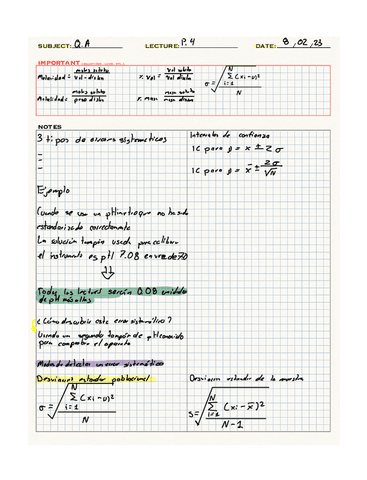 SUBJECT: Q.A LECTURE: P. 4 DATE: 8 , 02 , 23
IMPORTANT
Molaridad = moles soluto / vol-disoln % Vol = vol soluto / vol disoln σ = √ Σ (xi-υ)² / N
N
i=1
Molalidad = moles soluto / peso disoln % masa = masa soluto / masa disoln
NOTES
3 tipos de errores sistemáticos
-
-
-
Ejemplo
Cuando se usa un pHmetro que no ha sido
estandarizado correctamente
La solución tampón usada para calibrar
el instrumento es pH 7.08 en vez de 7.0
⇓
Todas las lecturas serán 0.08 unidades
de pH más altas
¿Cómo descubrir este error sistemático?
Usando un segundo tampón de pH conocido
para comprobar el aparato
Modos de detectar un error sistemático
Desviacion estandar poblacional
σ = √ N Σ i=1 (xi-υ)² / N
Intervalos de confianza
IC para β = x ± 2σ
IC para β = x̄ ± 2σ / √N
Desviacion estandar de la muestra
s = √ N Σ i=1 (xi - x̄)² / N-1